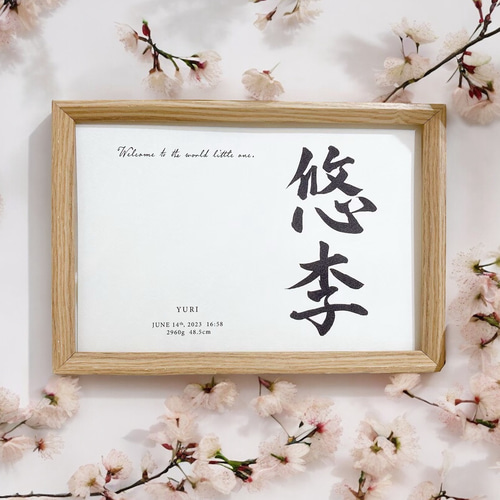 Welcome to the world little one.
悠李
YURI
JUNE 14th, 2023 16:58
2960g 48.5cm